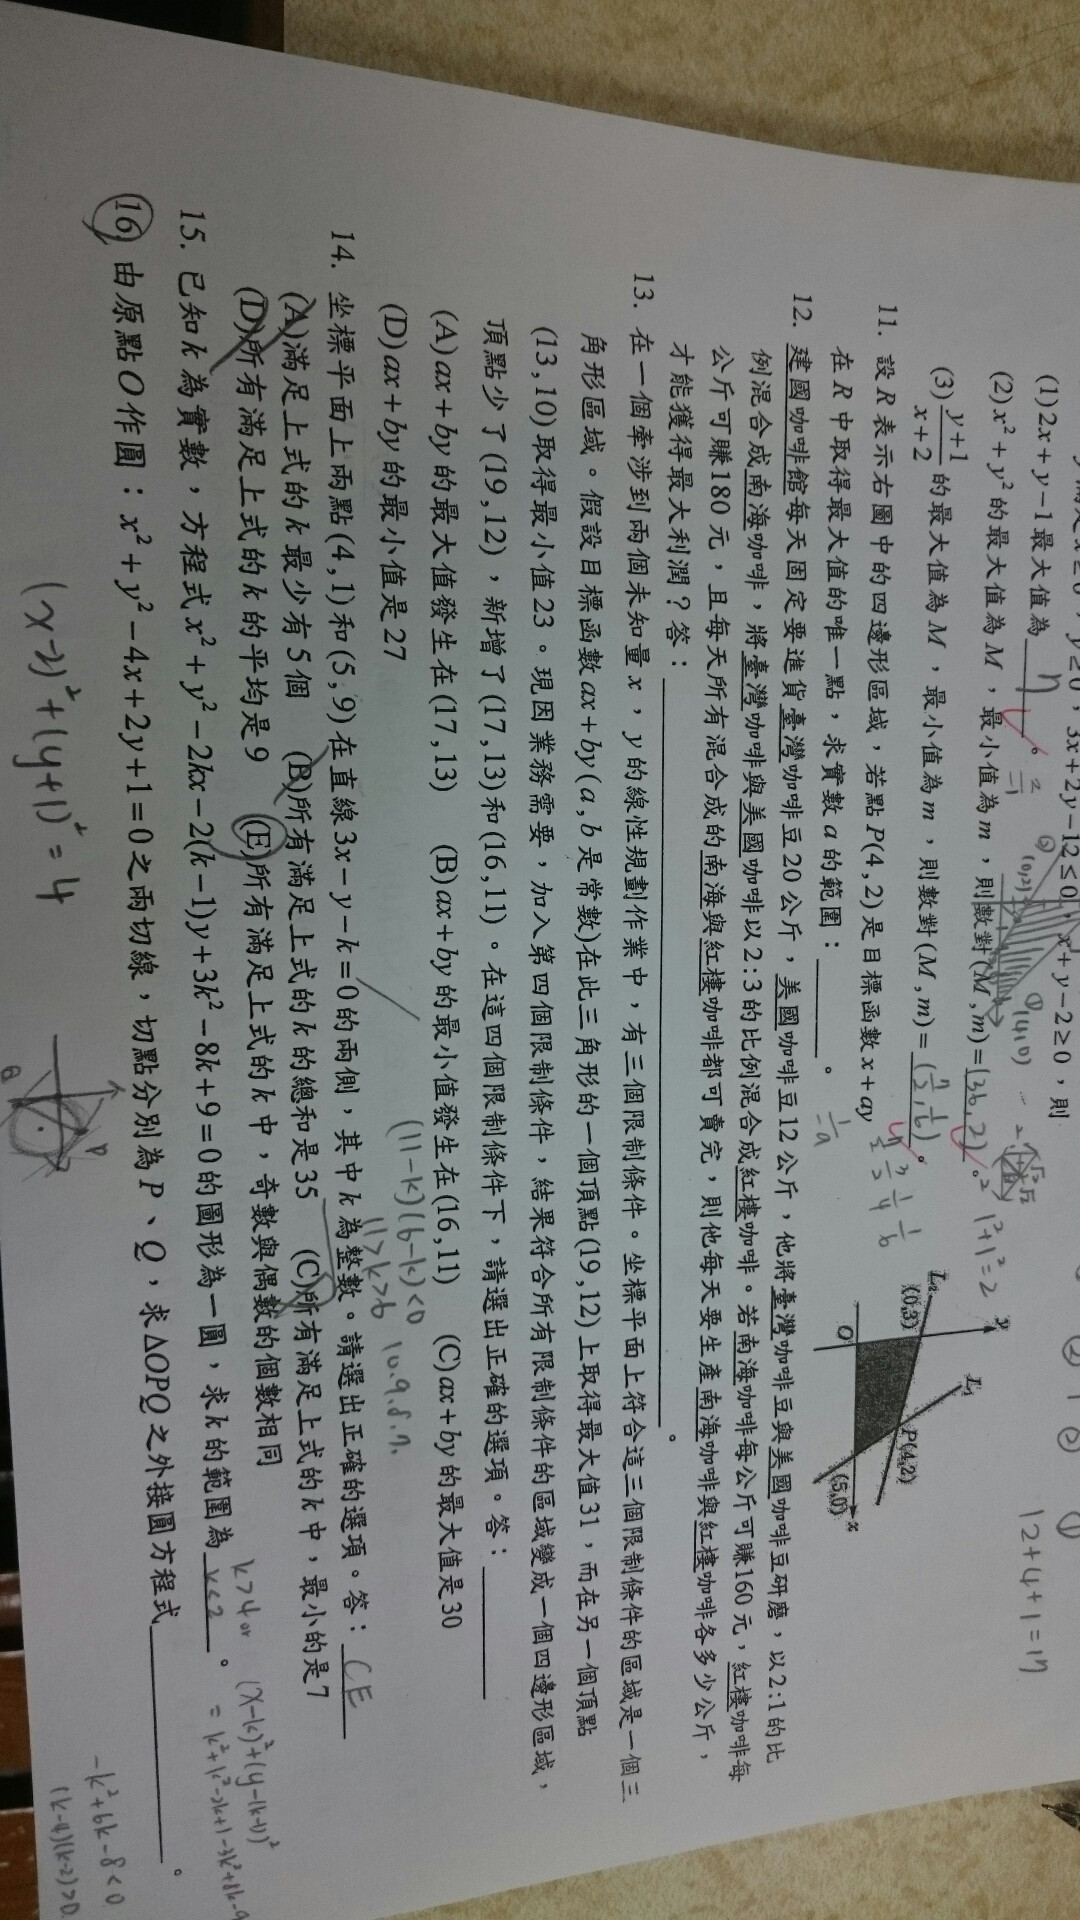 3x+2y-12≤0, x+y-2≥0，則
(1) 2x+y-1最大值為 7 。
(2) x²+y²的最大值為M，最小值為m，則數對(M,m)=(36,2)。
(3) y+1/x+2 的最大值為M，最小值為m，則數對(M,m)=
11. 設R表示右圖中的四邊形區域，若點P(4,2)是目標函數x+ay
在R中取得最大值的唯一點，求實數a的範圍：________。
L₂
y
L₁
(0,3)
P(4,2)
O
(5,0)
x
12. 建國咖啡館每天固定要進貨臺灣咖啡豆20公斤，美國咖啡豆12公斤，他將臺灣咖啡豆與美國咖啡豆研磨，以2:1的比
例混合成南海咖啡，將臺灣咖啡與美國咖啡以2:3的比例混合成紅樓咖啡。若南海咖啡每公斤可賺160元，紅樓咖啡每
公斤可賺180元，且每天所有混合成的南海與紅樓咖啡都可賣完，則他每天要生產南海咖啡與紅樓咖啡各多少公斤，
才能獲得最大利潤？答：________。
13. 在一個牽涉到兩個未知量x，y的線性規劃作業中，有三個限制條件。坐標平面上符合這三個限制條件的區域是一個三
角形區域。假設目標函數ax+by(a,b是常數)在此三角形的一個頂點(19,12)上取得最大值31，而在另一個頂點
(13,10)取得最小值23。現因業務需要，加入第四個限制條件，結果符合所有限制條件的區域變成一個四邊形區域，
頂點少了(19,12)，新增了(17,13)和(16,11)。在這四個限制條件下，請選出正確的選項。答：________
(A)ax+by的最大值發生在(17,13) (B)ax+by的最小值發生在(16,11) (C)ax+by的最大值是30
(D)ax+by的最小值是27
14. 坐標平面上兩點(4,1)和(5,9)在直線3x-y-k=0的兩側，其中k為整數。請選出正確的選項。答： CE
(A)滿足上式的k最少有5個 (B)所有滿足上式的k的總和是35 (C)所有滿足上式的k中，最小的是7
(D)所有滿足上式的k的平均是9 (E)所有滿足上式的k中，奇數與偶數的個數相同
15. 已知k為實數，方程式x²+y²-2kx-2(k-1)y+3k²-8k+9=0的圖形為一圓，求k的範圍為 k<2 。
16. 由原點O作圓：x²+y²-4x+2y+1=0之兩切線，切點分別為P、Q，求△OPQ之外接圓方程式________。
12+4+1=17
1²+1²=2
(11-k)(6-k)<0
11>k>6
10.9.8.7.
k>4 or
(x-k)²+(y-(k-1))²
=k²+k²-2k+1-3k²+8k-9
-k²+6k-8<0
(k-4)(k-2)>0
(x-2)²+(y+1)²=4
P
Q